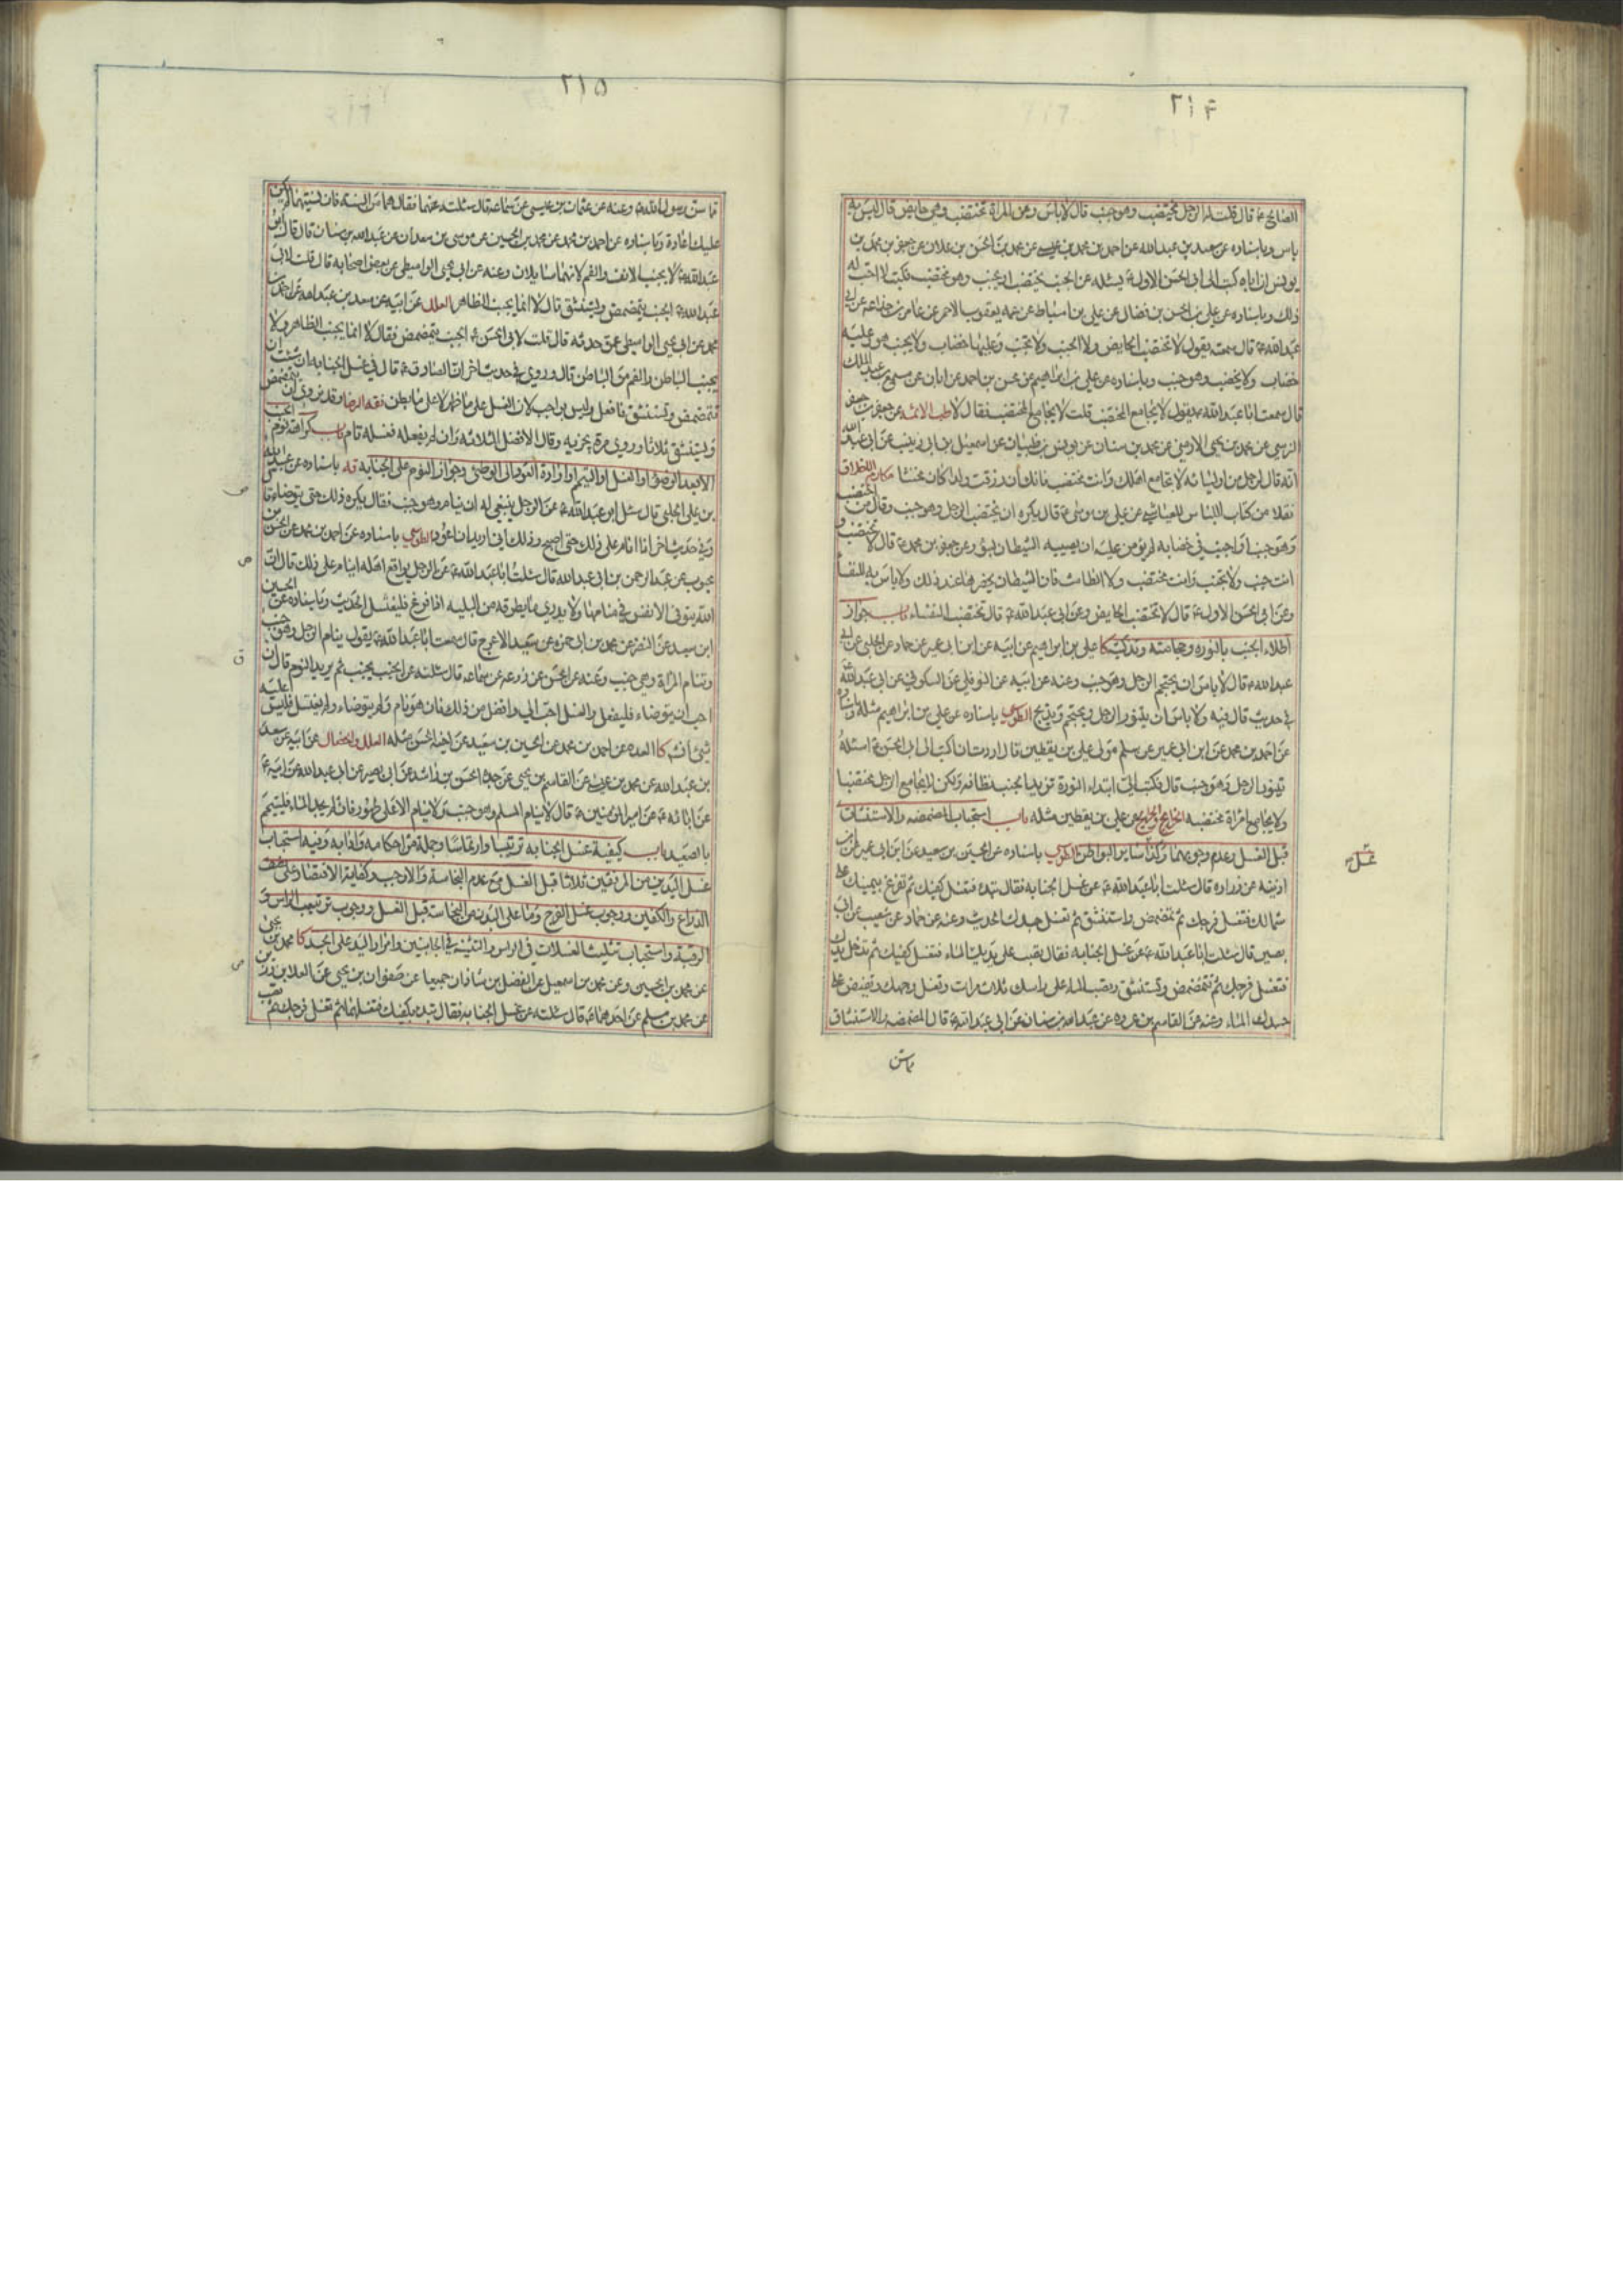 ٢١٤
الصالح ع قال قلت له الرجل يختضب وهو جنب قال لا باس وعن المراة تختضب وهي حايض قال ليس به
باس وباسناده عن سعد بن عبد الله عن احمد بن محمد بن عيسى عن محمد بن الحسن بن علان عن جعفر بن محمد بن
يونس ان اباه كتب الى ابي الحسن الاول ع يسئله عن الجنب يختضب او يجنب وهو مختضب فكتب لا احب له
ذلك وباسناده عن علي بن الحسن بن فضال عن علي بن اسباط عن عمه يعقوب الاحمر عن عامر بن جذاعة عن ابي
عبد الله ع قال سمعته يقول لا تختضب الحايض ولا الجنب ولا تجنب وعليها خضاب ولا يجنب هو وعليه
خضاب ولا يختضب وهو جنب وباسناده عن علي بن ابراهيم عن محسن بن احمد عن ابان عن مسمع بن عبد الملك
قال سمعت ابا عبد الله ع يقول لا يجامع المختضب قلت لا يجامع المختضب فقال لا طب الائمه عن جعفر بن
الرسي عن محمد بن يحيى الارمني عن محمد بن سنان عن يونس بن ظبيان عن اسمعيل بن ابي زينب عن ابي عبد الله
انه قال لرجل من اوليائه لا تجامع اهلك وانت مختضب فانك ان رزقت ولدا كان مخنثا مكارم الاخلاق
نقلا من كتاب اللباس للعياشي عن علي بن موسى ع قال يكره ان يختضب الرجل وهو جنب وقال من اختضب
وهو جنب او اجنب في خضابه لم يؤمن عليه ان يصيبه الشيطان بسوء وعن جعفر بن محمد ع قال لا تختضب و
انت جنب ولا تجنب وانت مختضب ولا الطامث فان الشيطان يحضرها عند ذلك ولا باس به للنفسا
وعن ابي الحسن الاول ع قال لا تختضب الحايض وعن ابي عبد الله ع قال تختضب النفساء باب جواز
اطلاء الجنب بالنوره وحجامته وتذكيته كا علي بن ابراهيم عن ابيه عن ابن ابي عمير عن حماد عن الحلبي عن ابي
عبد الله ع قال لا باس ان يحتجم الرجل وهو جنب وعنه عن ابيه عن النوفلي عن السكوني عن ابي عبد الله ع
في حديث قال فيه ولا باس ان يتنور الرجل ويحتجم ويذبح الطوسي باسناده عن علي بن ابراهيم مثله وباسناده
عن احمد بن محمد عن ابن ابي عمير عن سلم مولى علي بن يقطين قال اردت ان اكتب الى ابي الحسن ع اسئله
يتنور الرجل وهو جنب قال فكتب الي ابتداء النورة تزيد الجنب نظافه ولكن لا يجامع الرجل مختضبا
ولا يجامع امراة مختضبه الخرايج والجرايح عن علي بن يقطين مثله باب استحباب المضمضه والاستنشاق
قبل الغسل وعدم وجوبهما وكذا ساير البواطن الطوسي باسناده عن الحسين بن سعيد عن ابن ابي عمير عن ابن
اذينه عن زراره قال سئلت ابا عبد الله ع عن غسل الجنابه فقال تبدء فتغسل كفيك ثم تفرغ بيمينك على
شمالك فتغسل فرجك ثم تمضمض واستنشق ثم تغسل جسدك الحديث وعنه عن حماد عن شعيب عن ابي
بصير قال سئلت ابا عبد الله ع عن غسل الجنابه فقال تصب على يديك الماء فتغسل كفيك ثم تدخل يدك
فتغسل فرجك ثم تتمضمض وتستنشق وتصب الماء على راسك ثلاث مرات وتغسل وجهك وتفيض على
جسدك الماء وعنه عن القاسم بن عروه عن عبد الله بن سنان عن ابي عبد الله ع قال المضمضه والاستنشاق
٢١٥
مما سن رسول الله ص وعنه عن عثمان بن عيسى عن سماعه قال سئلته عنهما فقال هما من السنه فان نسيتهما لم يكن
عليك اعادة وباسناده عن احمد بن محمد عن محمد بن الحسين عن موسى بن سعدان عن عبد الله بن سنان قال قال ابو
عبد الله ع لا يجنب الانف والفم لانهما سايلان وعنه عن ابي يحيى الواسطي عن بعض اصحابه قال قلت لابي
عبد الله ع الجنب يتمضمض ويستنشق قال لا انما يجنب الظاهر العلل عن ابيه عن سعد بن عبد الله عن احمد بن
محمد عن ابي يحيى الواسطي عمن حدثه قال قلت لابي الحسن ع الجنب يتمضمض فقال لا انما يجنب الظاهر ولا
يجنب الباطن والفم من الباطن قال وروي في حديث اخر ان الصادق ع قال في غسل الجنابه ان شئت ان
تتمضمض وتستنشق فافعل وليس بواجب لان الغسل على ما ظهر لا على ما بطن فقه الرضا وقد نروي ان يتمضمض
ويستنشق ثلاثا وروي مرة يجزيه وقال الافضل الثلاثه وان لم يفعله فغسله تام باب كراهة نوم الجنب
الا بعد الوضوء او الغسل او التيمم او ارادة العود الى الوطئ وجواز النوم على الجنابه قه باسناده عن عبيد الله
بن علي الحلبي قال سئل ابو عبد الله ع عن الرجل ينبغي له ان ينام وهو جنب فقال يكره ذلك حتى يتوضاء قال
وفي حديث اخر انا انام على ذلك حتى اصبح وذلك اني اريد ان اعود الطوسي باسناده عن احمد بن محمد عن الحسن بن
محبوب عن عبد الرحمن بن ابي عبد الله قال سئلت ابا عبد الله ع عن الرجل يواقع اهله اينام على ذلك قال ان
الله يتوفى الانفس في منامها ولا يدري ما يطرقه من البليه اذا فرغ فليغتسل الحديث وباسناده عن الحسين
ابن سعيد عن النضر عن محمد بن ابي حمزه عن سعيد الاعرج قال سمعت ابا عبد الله ع يقول ينام الرجل وهو جنب
وتنام المراة وهي جنب وعنه عن الحسن عن زرعه عن سماعه قال سئلته عن الجنب يجنب ثم يريد النوم قال ان
احب ان يتوضاء فليفعل والغسل احب الي وافضل من ذلك فان هو نام ولم يتوضاء ولم يغتسل فليس عليه
شيئ انشه كا العده عن احمد بن محمد عن الحسين بن سعيد عن اخيه الحسن مثله العلل والخصال عن ابيه عن سعد
بن عبد الله عن محمد بن عيسى عن القاسم بن يحيى عن جده الحسن بن راشد عن ابي بصير عن ابي عبد الله عن ابيه ع
عن ابائه ع عن امير المؤمنين ع قال لا ينام المسلم وهو جنب ولا ينام الا على طهور فان لم يجد الماء فليتيمم
بالصعيد باب كيفية غسل الجنابه ترتيبا وارتماسا وجملة من احكامه وادابه وفيه استحباب
غسل اليدين من المرفقين ثلاثا قبل الغسل مع عدم النجاسة والا وجب وكفاية الاقتصار على نصف
الذراع والكفين ووجوب غسل الفرج وما على البدن من النجاسة قبل الغسل ووجوب ترتيب الراس و
الرقبة واستحباب تثليث الغسلات في الراس والتثنيه في الجانبين وامرار اليد على الجسد كا محمد بن يحيى
عن محمد بن الحسين وعن محمد بن اسمعيل عن الفضل بن شاذان جميعا عن صفوان بن يحيى عن العلا بن رزين
عن محمد بن مسلم عن احدهما ع قال سئلته عن غسل الجنابه فقال تبدء بكفيك فتغسلهما ثم تغسل فرجك ثم تصب